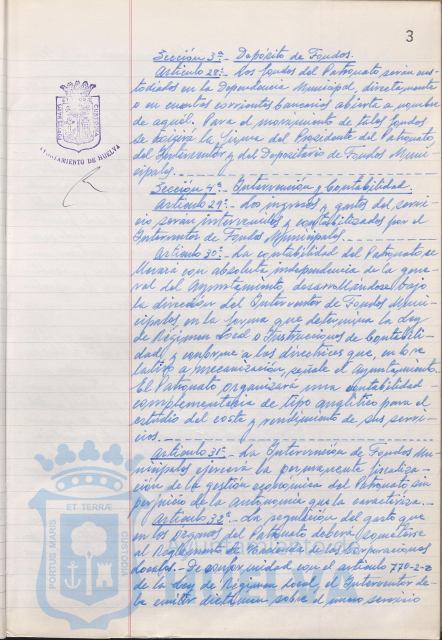 3
Sección 3ª.- Depósito de Fondos.
Artículo 28º.- Los fondos del Patronato serán cus-
todiados en la Dependencia Municipal, directamente
o en cuentas corrientes bancarias abierta a nombre
de aquél. Para el movimiento de tales fondos
se exigirá la firma del Presidente del Patronato
del Interventor y del Depositario de Fondos Muni-
cipales.
Sección 4ª.- Intervención y Contabilidad.
Artículo 29º.- Los ingresos y gastos del servi-
cio serán intervenidos y contabilizados por el
Interventor de Fondos Municipales.
Artículo 30º.- La contabilidad del Patronato, se
llevará con absoluta independencia de la gene-
ral del Ayuntamiento, desarrollándose bajo
la dirección del Interventor de Fondos Muni-
cipales en la forma que determina la Ley
de Régimen Local o Instrucciones de Contabili-
dad, y conforme a las directrices que, en lo re-
lativo a mecanización, señale el Ayuntamiento.
El Patronato organizará una contabilidad
complementaria de tipo analítico para el
estudio del coste y rendimiento de sus servi-
cios.
Artículo 31º.- La Intervención de Fondos Mu-
nicipales ejercerá la permanente fiscaliza-
ción de la gestión económica del Patronato sin
perjuicio de la autonomía que la caracteriza.
Artículo 32º.- La regulación del gasto que
en los órganos del Patronato deberá someterse
al Reglamento de Hacienda de las Corporaciones
Locales.- De conformidad con el artículo 770-2-2
de la Ley de Régimen Local, el Interventor de-
be emitir dictamen sobre el nuevo servicio
AYUNTAMIENTO DE HUELVA
PORTUS MARIS
ET TERRÆ
CUSTODIA